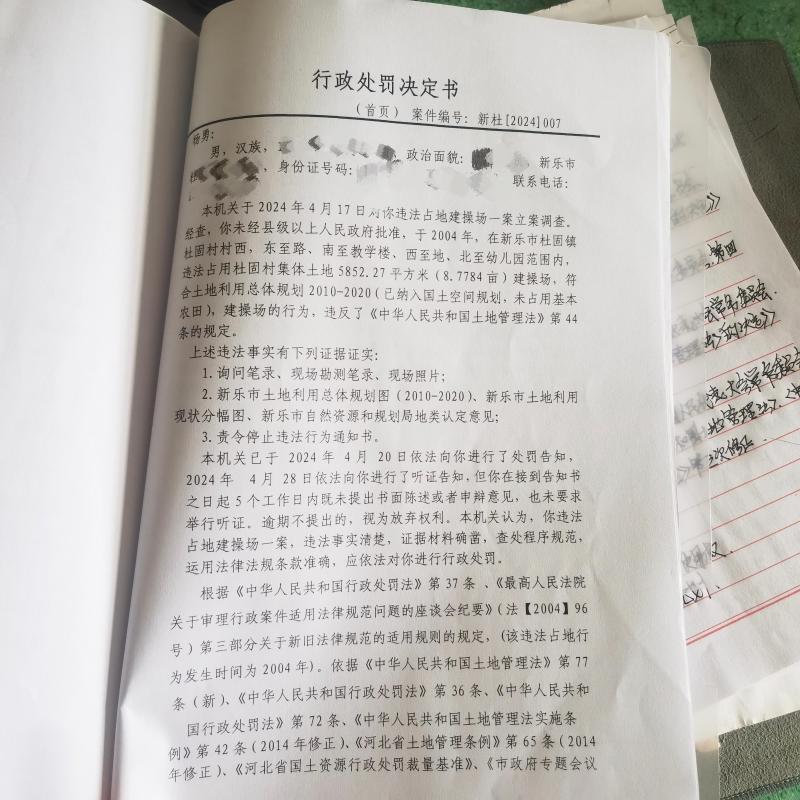 行政处罚决定书
(首页) 案件编号: 新杜[2024]007
杨勇:
男, 汉族,
政治面貌:
新乐市
身份证号码:
联系电话:
本机关于2024年4月17日对你违法占地建操场一案立案调查。
经查, 你未经县级以上人民政府批准, 于2004年, 在新乐市杜固镇
杜固村村西, 东至路、南至教学楼、西至地、北至幼儿园范围内,
违法占用杜固村集体土地5852.27平方米(8.7784亩)建操场, 符
合土地利用总体规划2010-2020(已纳入国土空间规划, 未占用基本
农田), 建操场的行为, 违反了《中华人民共和国土地管理法》第44
条的规定。
上述违法事实有下列证据证实:
1. 询问笔录、现场勘测笔录、现场照片;
2. 新乐市土地利用总体规划图(2010-2020)、新乐市土地利用
现状分幅图、新乐市自然资源和规划局地类认定意见;
3. 责令停止违法行为通知书。
本机关已于 2024年 4月 20日依法向你进行了处罚告知,
2024年 4月 28日依法向你进行了听证告知, 但你在接到告知书
之日起5个工作日内既未提出书面陈述或者申辩意见, 也未要求
举行听证。逾期不提出的, 视为放弃权利。本机关认为, 你违法
占地建操场一案, 违法事实清楚, 证据材料确凿, 查处程序规范,
运用法律法规条款准确, 应依法对你进行行政处罚。
根据《中华人民共和国行政处罚法》第37条、《最高人民法院
关于审理行政案件适用法律规范问题的座谈会纪要》(法【2004】96
号)第三部分关于新旧法律规范的适用规则的规定, (该违法占地行
为发生时间为2004年)。依据《中华人民共和国土地管理法》第77
条(新)、《中华人民共和国行政处罚法》第36条、《中华人民共和
国行政处罚法》第72条、《中华人民共和国土地管理法实施条
例》第42条(2014年修正)、《河北省土地管理条例》第65条(2014
年修正)、《河北省国土资源行政处罚裁量基准》、《市政府专题会议
第四